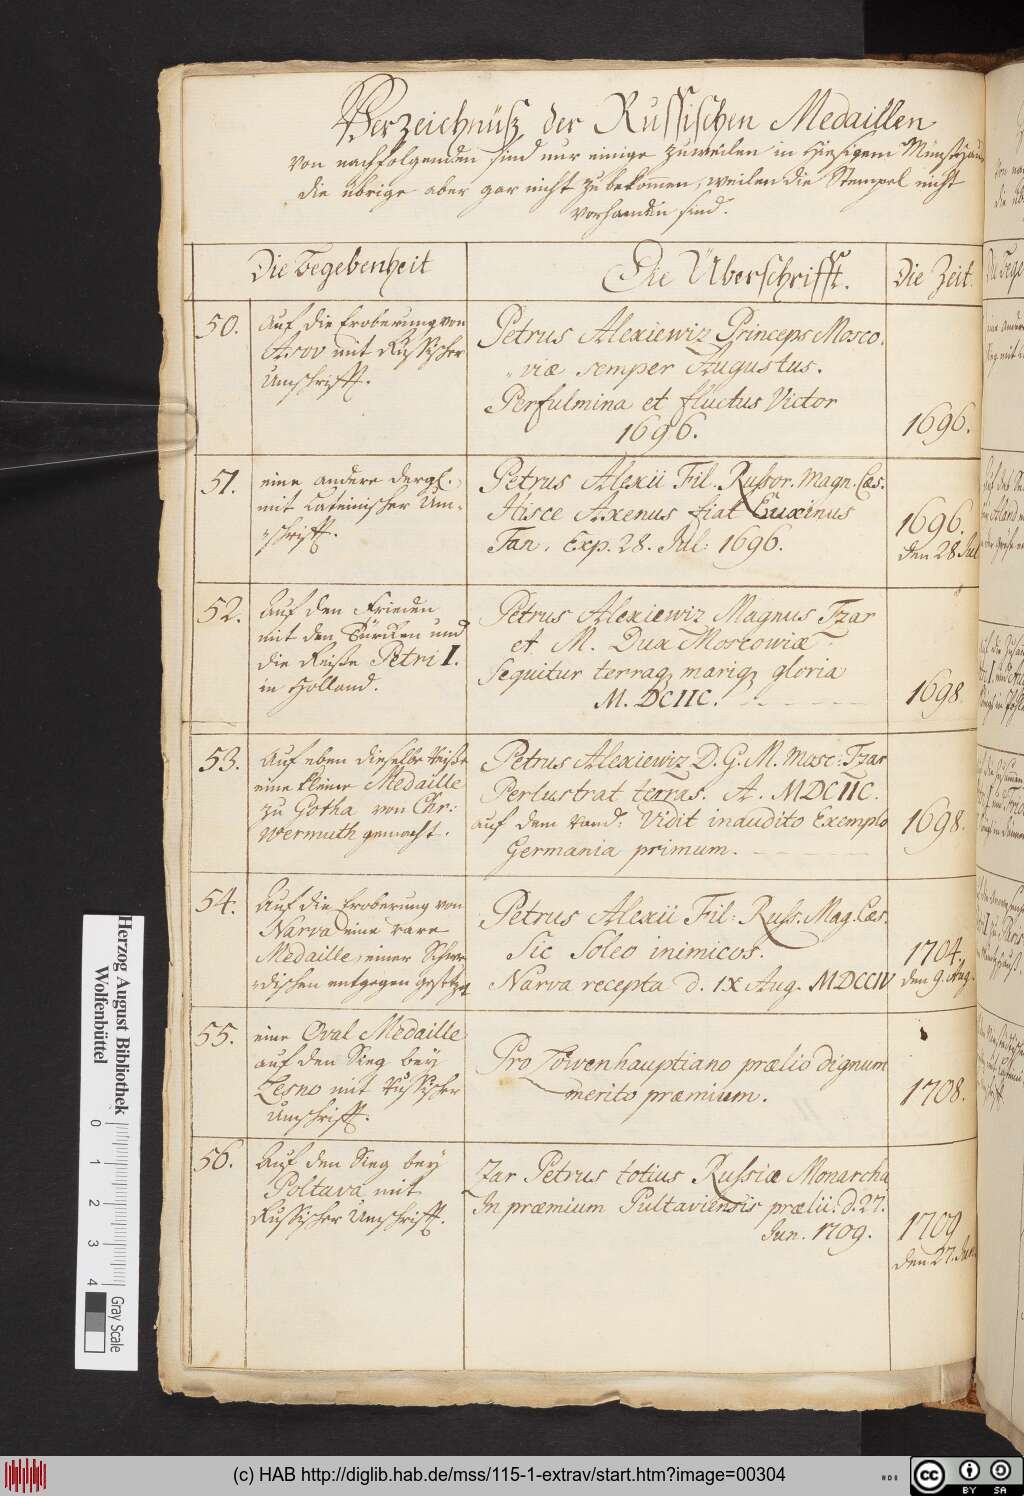 Verzeichnüß der Russischen Medaillen
von nachfolgenden sind nur einige zuweilen in hiesigem Müntzhauß
die übrige aber gar nicht zu bekommen, weilen die Stempel nicht
vorhanden sind.
Die Begebenheit
Die Überschrifft.
Die Zeit.
50.
Auf die Eroberung von
Asov mit Russischer
Umschrifft.
Petrus Alexiewiz Princeps Mosco-
viæ semper Augustus.
Perfulmina et fluctus Victor
1696.
1696.
51.
eine andere dergl.
mit Lateinischer Um-
schrifft.
Petrus Alexii Fil. Russor. Magn. Cæs.
Hisce Axenus fiat Euxinus
Tan. Exp. 28. Jul: 1696.
1696.
den 28. Jul
52.
Auf den Frieden
mit den Türcken und
die Reise Petri I.
in Holland.
Petrus Alexiewiz Magnus Tzar
et M. Dux Moscowiæ
Sequitur terraq mariq gloria
M. DCIIC.
1698
53.
Auf eben dieselbe Reise
eine kleine Medaille
zu Gotha von Chr:
Wermuth gemacht.
Petrus Alexiewiz D. G. M. Mosc: Tzar
Perlustrat terras. A. MDCIIC.
auf dem Rand: Vidit inaudito Exemplo
Germania primum.
1698.
54.
Auf die Eroberung von
Narva eine rare
Medaille, einer Schwe-
dischen entgegen gesetzet
Petrus Alexii Fil: Russ. Mag. Cæs.
Sic Soleo inimicos.
Narva recepta d. IX Aug. MDCCIV
1704.
den 9. Aug.
55.
eine Oval Medaille
auf den Sieg bey
Lesno mit Russischer
Umschrifft.
Pro Löwenhauptiano prælio dignum
merito præmium.
1708.
56.
Auf den Sieg bey
Poltava mit
Russischer Umschrifft.
Zar Petrus totius Russiæ Monarcha
In præmium Pultaviensis prælii. d. 27.
Jun. 1709.
1709
den 27. Jun
Herzog August Bibliothek
Wolfenbüttel
0 1 2 3 4
Gray Scale
(c) HAB http://diglib.hab.de/mss/115-1-extrav/start.htm?image=00304
cc BY SA